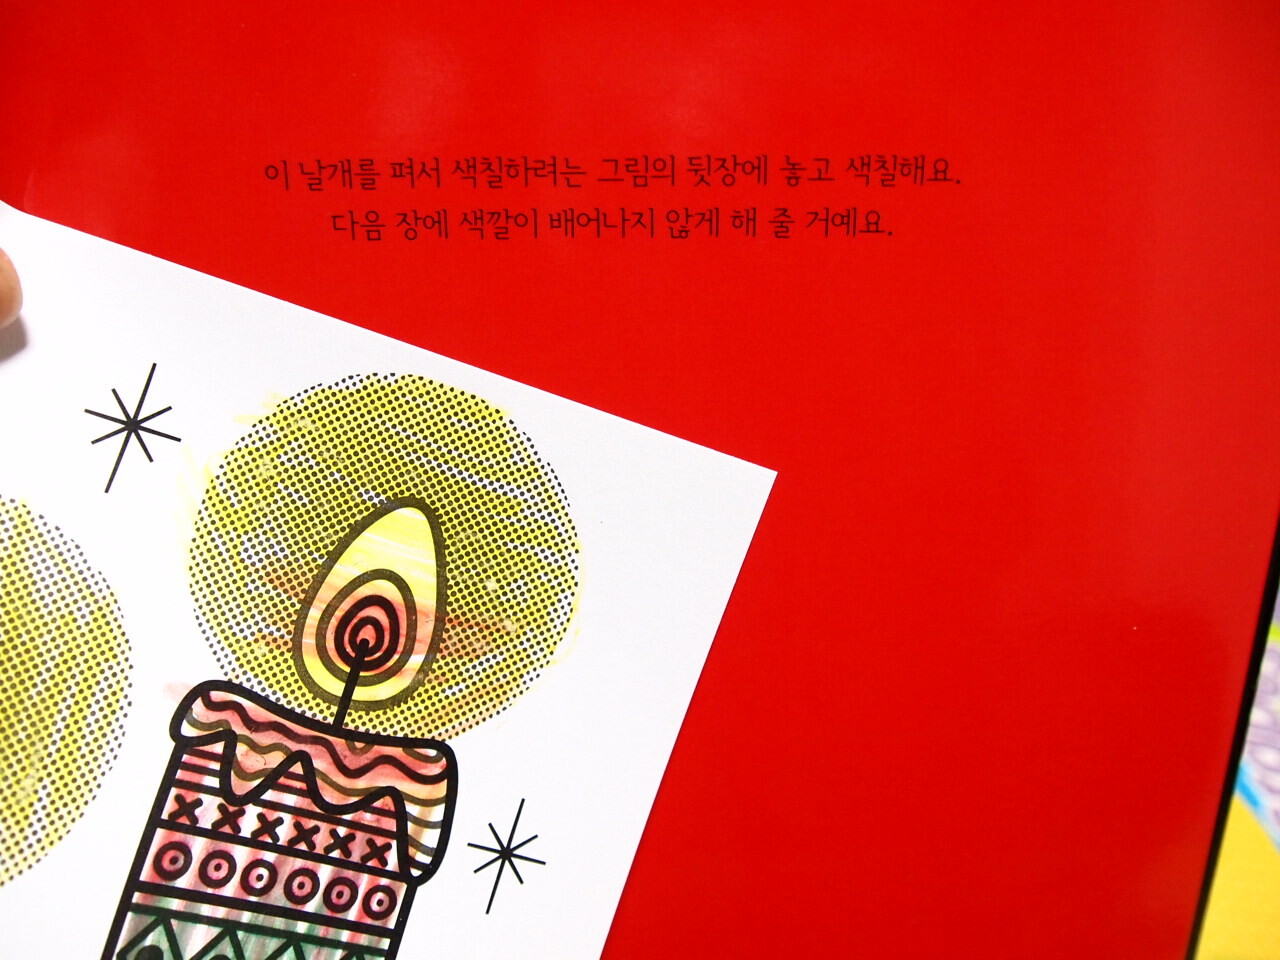 이 날개를 펴서 색칠하려는 그림의 뒷장에 놓고 색칠해요.
다음 장에 색깔이 배어나지 않게 해 줄 거예요.